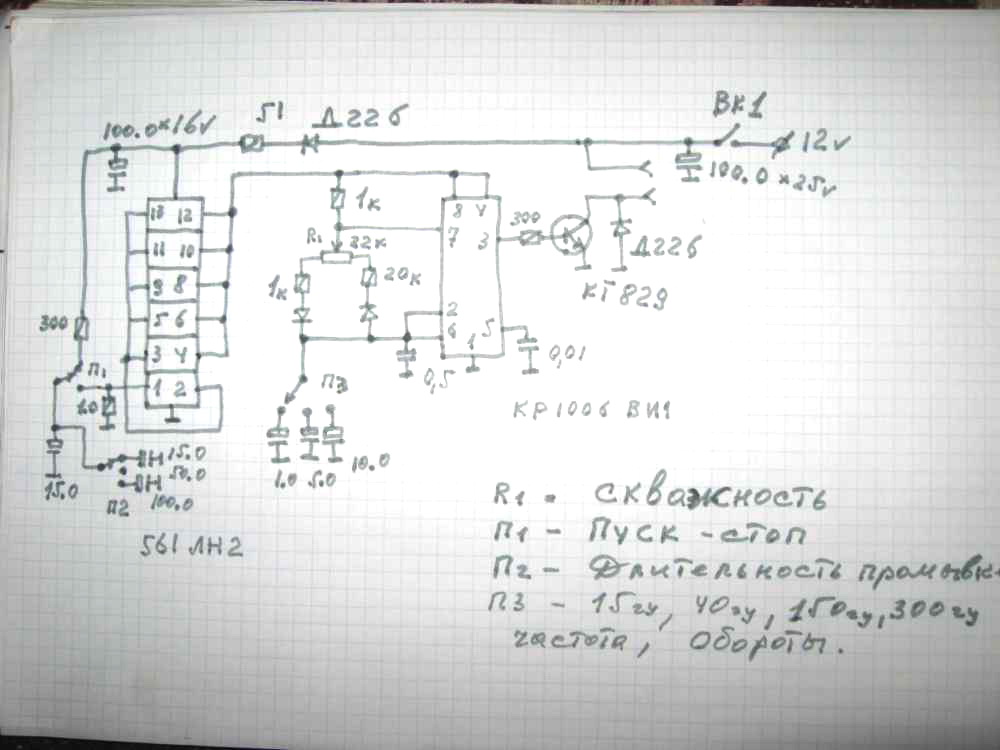 ВК1
51 Д226
100.0×16v
12v
100.0×25v
13 12
1к
8 4
7
300
3
R1 22к
11 10
Д226
1к
20к
9 8
КТ829
300
5 6
2
6 1 5
П1
3 4
0,01
0,5
П3
1 2
20
КР1006 ВИ1
15.0
50.0
10.0
1.0 5.0
15.0
100.0
П2
561 ЛН2
R1 - скважность
П1 - Пуск - стоп
П2 - Длительность промывк
П3 - 15гц, 40гц, 150гц, 300гц
частота, Обороты.